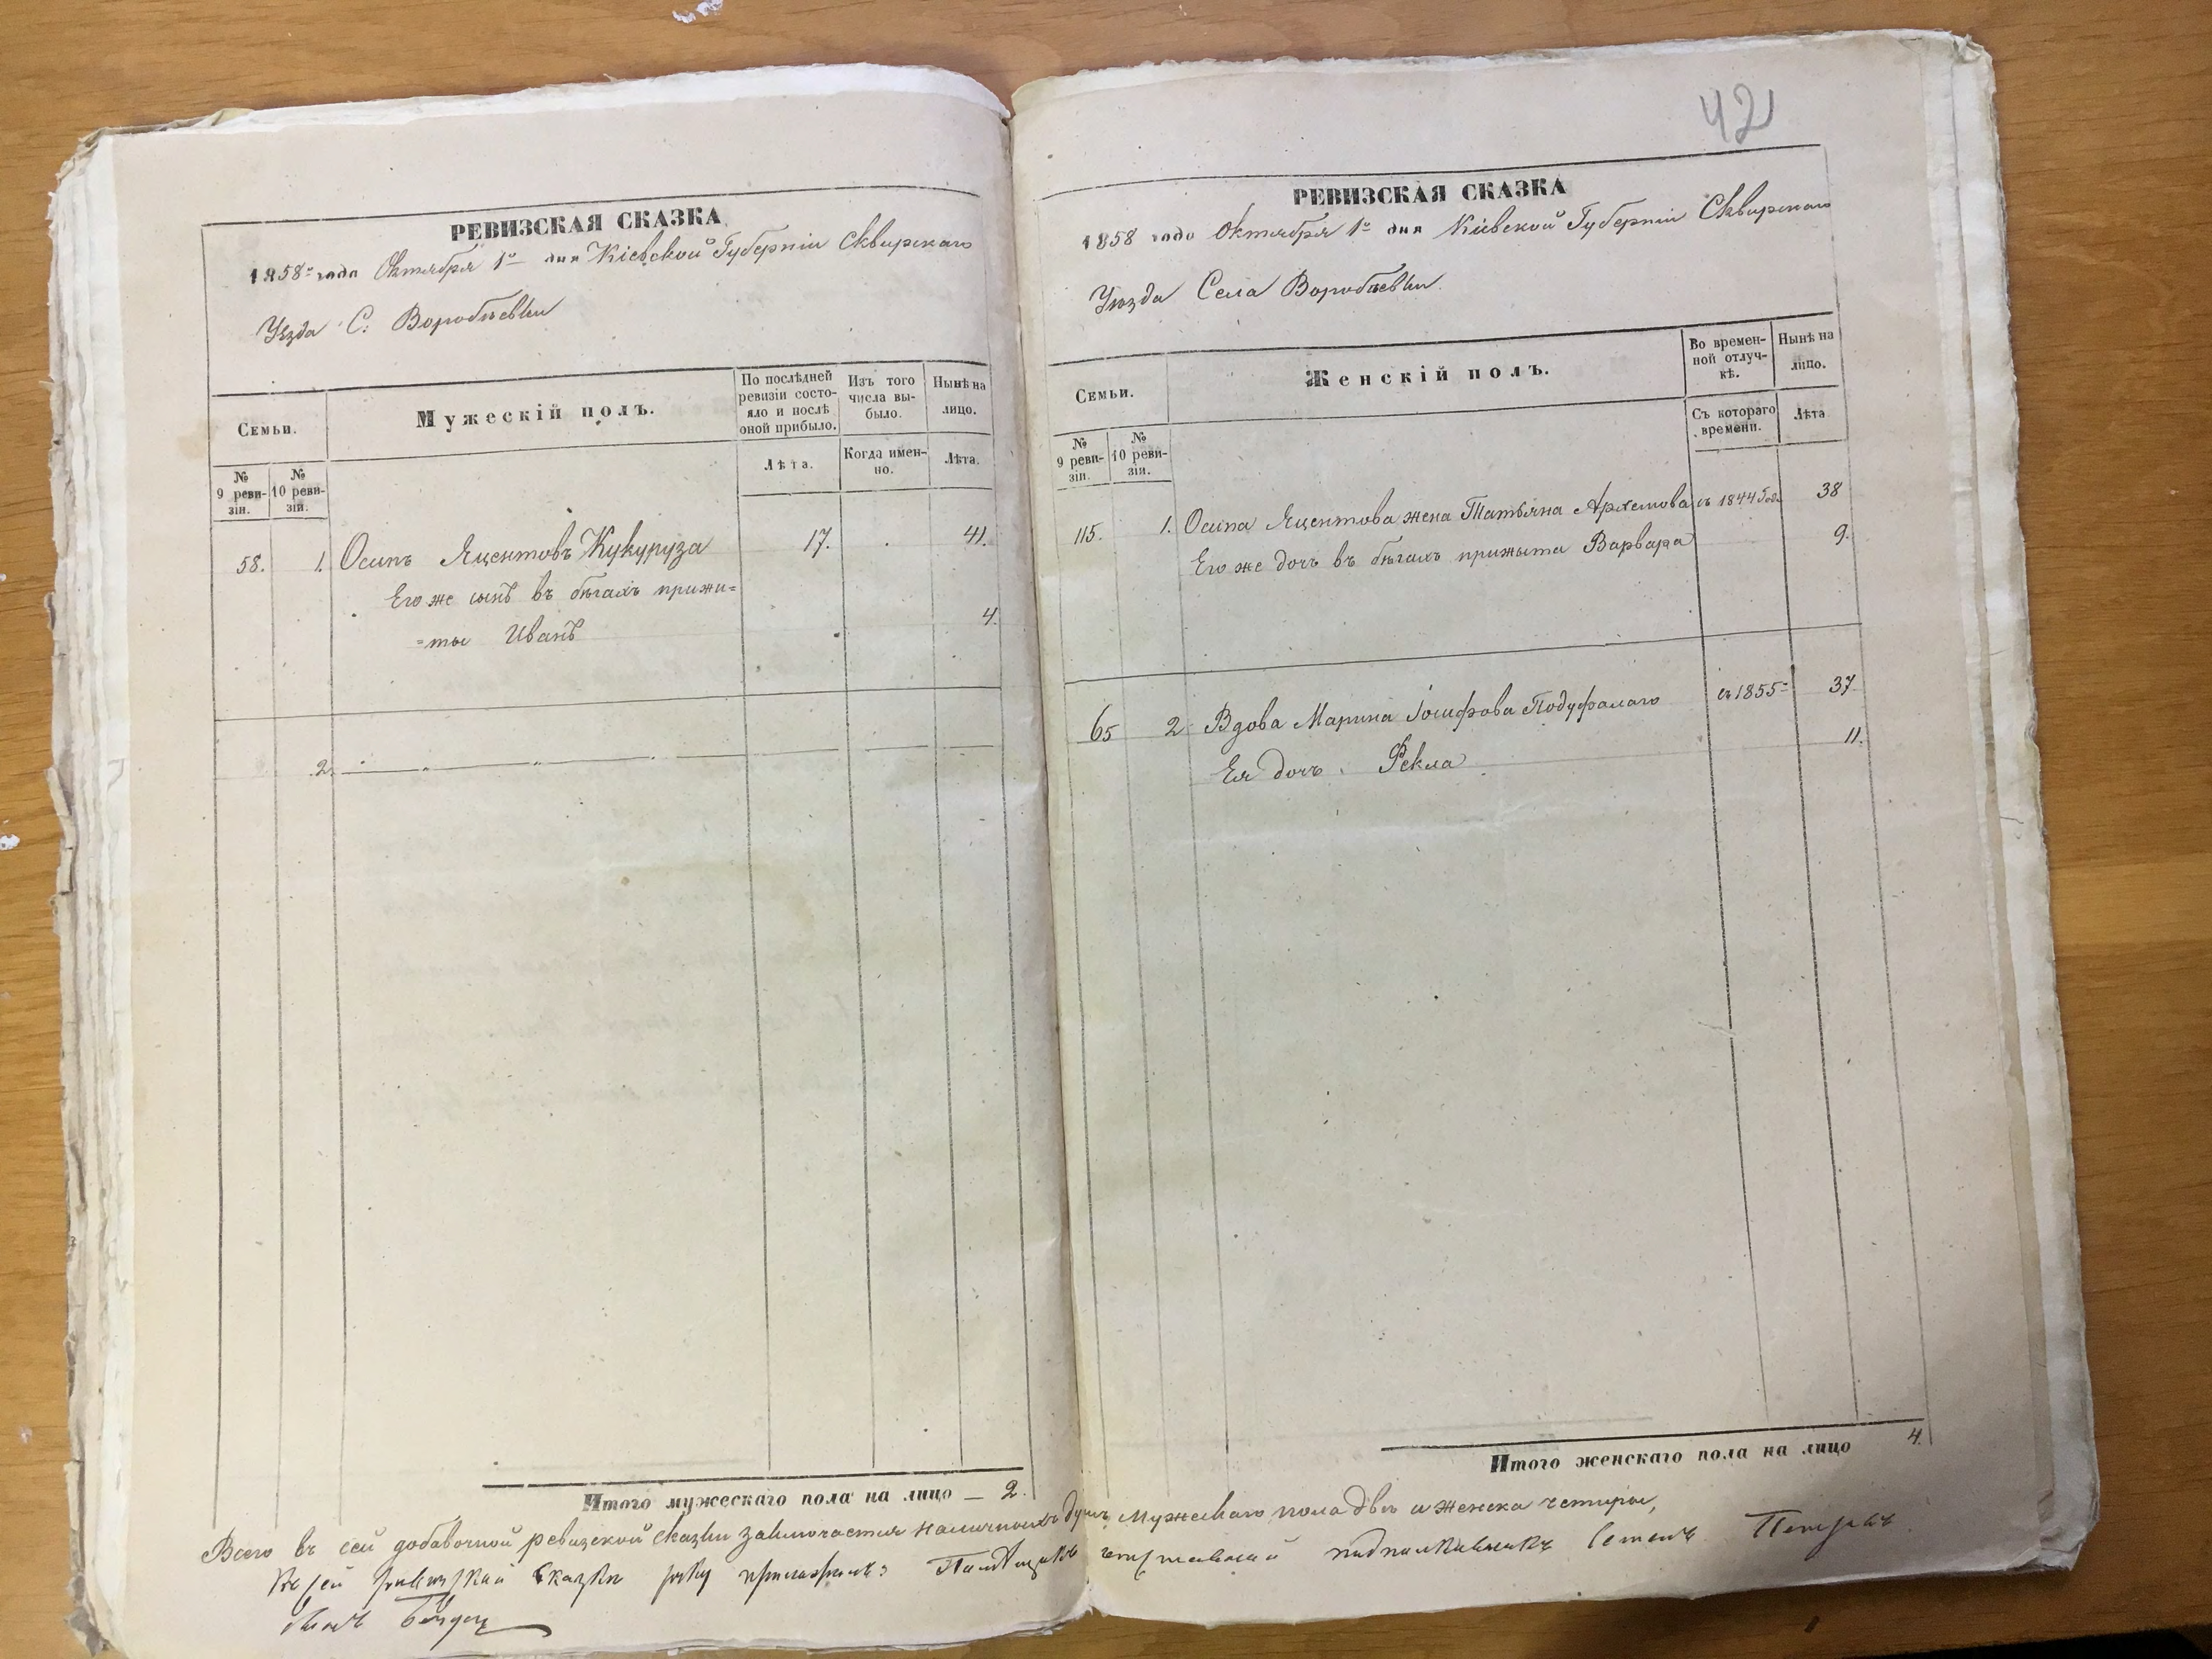 РЕВИЗСКАЯ СКАЗКА
1858го года Октября 1го дня Кіевской Губерніи Сквирскаго
Уѣзда С: Воробіевки
Семьи.
Мужескій полъ.
По послѣдней ревизіи состояло и послѣ оной прибыло.
Изъ того числа выбыло.
Нынѣ на лицо.
№ 9 ревизіи.
№ 10 ревизіи.
Лѣта.
Когда именно.
Лѣта.
58. 1. Осипъ Яцентовъ Кукуруза 17. 41.
Его же сынъ въ бѣгахъ прижи=
=тый Иванъ 4.
2.
Итого мужескаго пола на лицо — 2.
42
РЕВИЗСКАЯ СКАЗКА
1858 года Октября 1го дня Кіевской Губерніи Сквирскаго
Уѣзда Села Воробіевки
Семьи.
Женскій полъ.
Во временной отлучкѣ.
Нынѣ на лицо.
№ 9 ревизіи.
№ 10 ревизіи.
Съ котораго времени.
Лѣта.
115. 1. Осипа Яцентова жена Татьяна Артемова съ 1844 38
Его же дочь въ бѣгахъ прижыта Варвара 9.
65 2 Вдова Марина Іосифова съ 1855 37
Ея дочь Ѳекла 11.
Итого женскаго пола на лицо 4.
Всего въ сей добавочной ревизской сказки заключается наличныхъ душъ мужескаго пола двѣ и женска четыре,
Къ сей ревизской сказки руку приложилъ: Помѣщикъ отставной подполковникъ